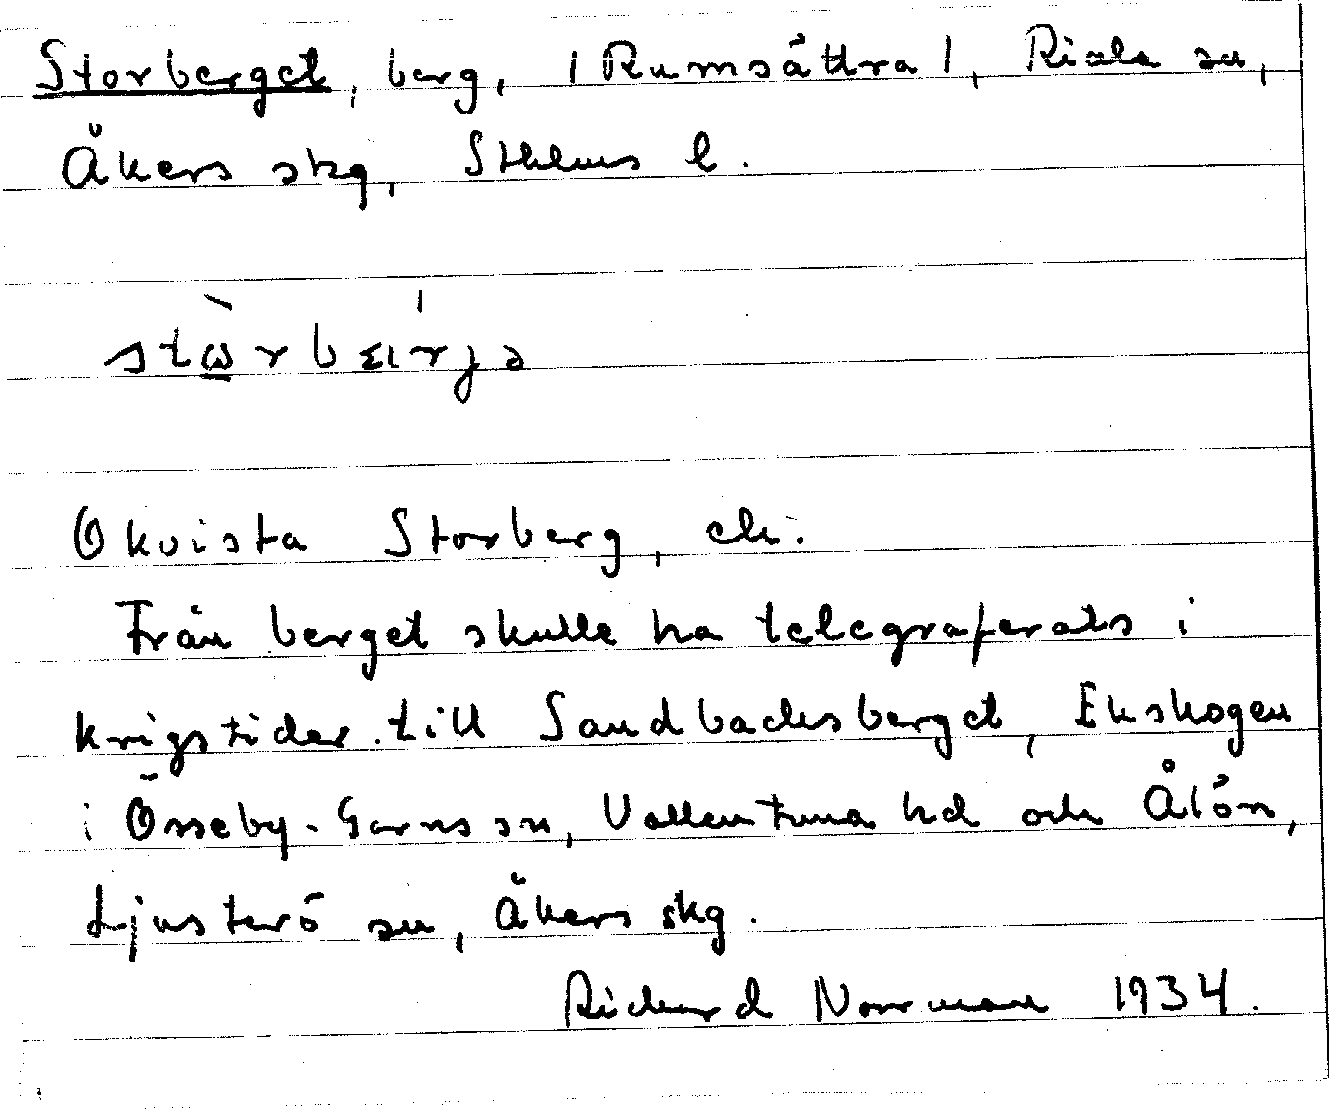 Storberget, berg, (Rumsättra), Riala sn,
Åkers skg, Sthlms l.
stɷ̀rbæırjə
Okvista Storberg, ek.
Från berget skulle ha telegraferats i
krigstider till Sandbacksberget, Ekskogen
i Össeby-Garns sn, Vallentuna hd och Älön,
Ljusterö sn, Åkers skg.
Richard Norrman 1934.